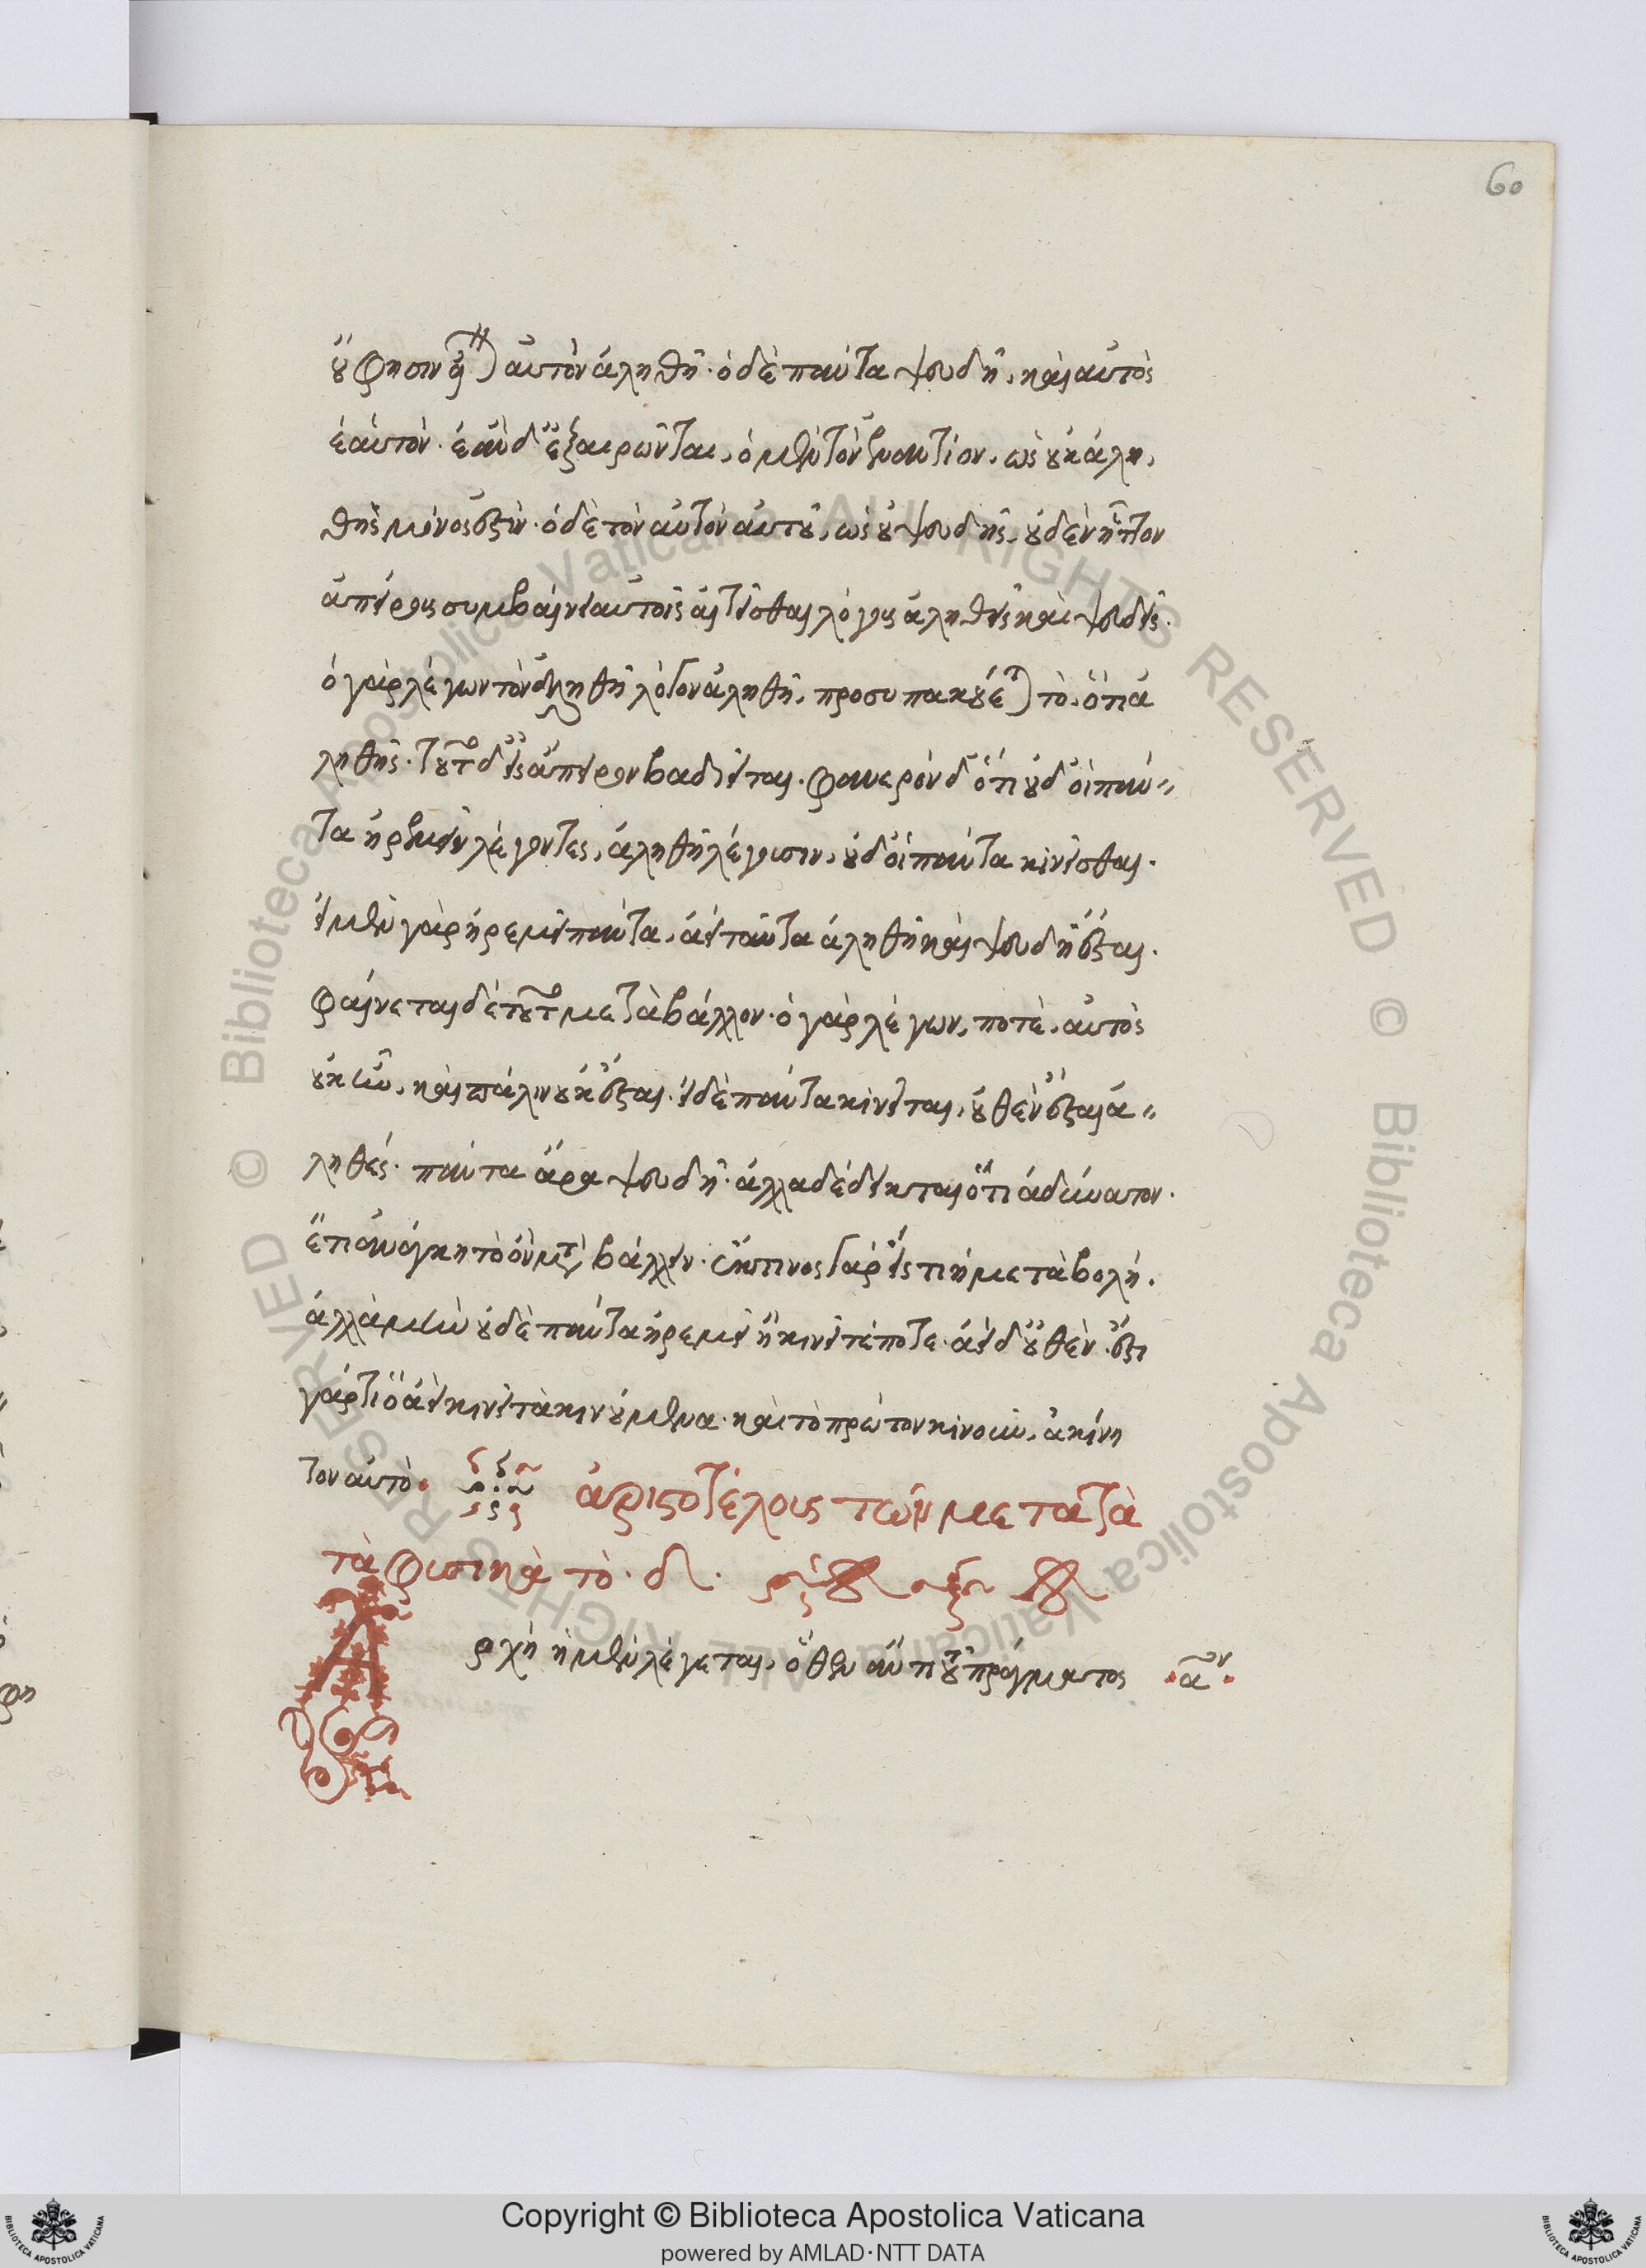 60
οὔ φησιν εἶναι αὐτὸν ἀληθῆ· ὁ δὲ πάντα ψευδῆ, καὶ αὐτὸς
ἑαυτόν· ἐὰν δ' ἐξαιρῶνται, ὁ μὲν τὸν ἐναντίον, ὡς οὐκ ἀλη,
θὴς μόνος ἐστίν· ὁ δὲ τὸν αὐτὸν αὐτοῦ, ὡς οὐ ψευδής, οὐδὲν ἧττον
ἀπείρους συμβαίνει αὐτοῖς αἰτεῖσθαι λόγους ἀληθεῖς καὶ ψευδεῖς·
ὁ γὰρ λέγων τὸν ἀληθῆ λόγον ἀληθῆ, προσυπακούεται τὸ, ὅτι ἀ
ληθής· τοῦτο δ' εἰς ἄπειρον βαδιεῖται· φανερὸν δ' ὅτι οὐδ' οἱ πάν-
τα ἠρεμεῖν λέγοντες, ἀληθῆ λέγουσιν, οὐδ' οἱ πάντα κινεῖσθαι·
εἰ μὲν γὰρ ἠρεμεῖ πάντα, ἀεὶ ταῦτα ἀληθῆ καὶ ψευδῆ ἔσται·
φαίνεται δὲ τοῦτο μεταβάλλον· ὁ γὰρ λέγων, ποτὲ, αὐτὸς
οὐκ ἦν, καὶ πάλιν οὐκ ἔσται· εἰ δὲ πάντα κινεῖται, οὐθὲν ἔσται ἀ-
ληθές· πάντα ἄρα ψευδῆ· ἀλλὰ δέδεικται ὅτι ἀδύνατον·
ἔτι ἀνάγκη τὸ ὂν μεταβάλλειν· ἔκ τινος γὰρ εἴς τι ἡ μεταβολή·
ἀλλὰ μὴν οὐδὲ πάντα ἠρεμεῖ ἢ κινεῖται ποτέ· ἀεὶ δ' οὐθέν· ἔστι
γάρ τι ὃ ἀεὶ κινεῖ τὰ κινούμενα· καὶ τὸ πρῶτον κινοῦν, ἀκίνη
τον αὐτό· ἀριστοτέλους τῶν μετα τὰ
τὰ φυσικὰ τὸ· δ·
Αρχὴ ἡ μὲν λέγεται, ὅθεν ἄν τι τοῦ πράγματος ·α῀ον·
Copyright © Biblioteca Apostolica Vaticana
powered by AMLAD·NTT DATA